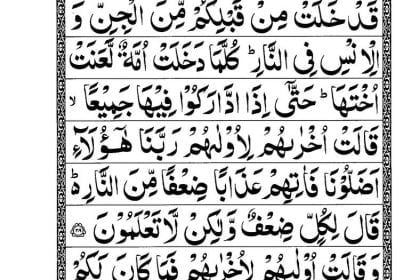 قَدْ خَلَتْ مِنْ قَبْلِكُمْ مِّنَ الْجِنِّ وَ
الْاِنْسِ فِی النَّارِ ؕ كُلَّمَا دَخَلَتْ اُمَّةٌ لَّعَنَتْ
اُخْتَهَا ؕ حَتّٰۤی اِذَا ادَّارَكُوْا فِیْهَا جَمِیْعًا ۙ
قَالَتْ اُخْرٰىهُمْ لِاُوْلٰىهُمْ رَبَّنَا هٰۤؤُلَآءِ
اَضَلُّوْنَا فَاٰتِهِمْ عَذَابًا ضِعْفًا مِّنَ النَّارِ ؕ
قَالَ لِكُلٍّ ضِعْفٌ وَّلٰكِنْ لَّا تَعْلَمُوْنَ ﴿۳۸﴾
وَقَالَتْ اُوْلٰىهُمْ لِاُخْرٰىهُمْ فَمَا كَانَ لَكُمْ